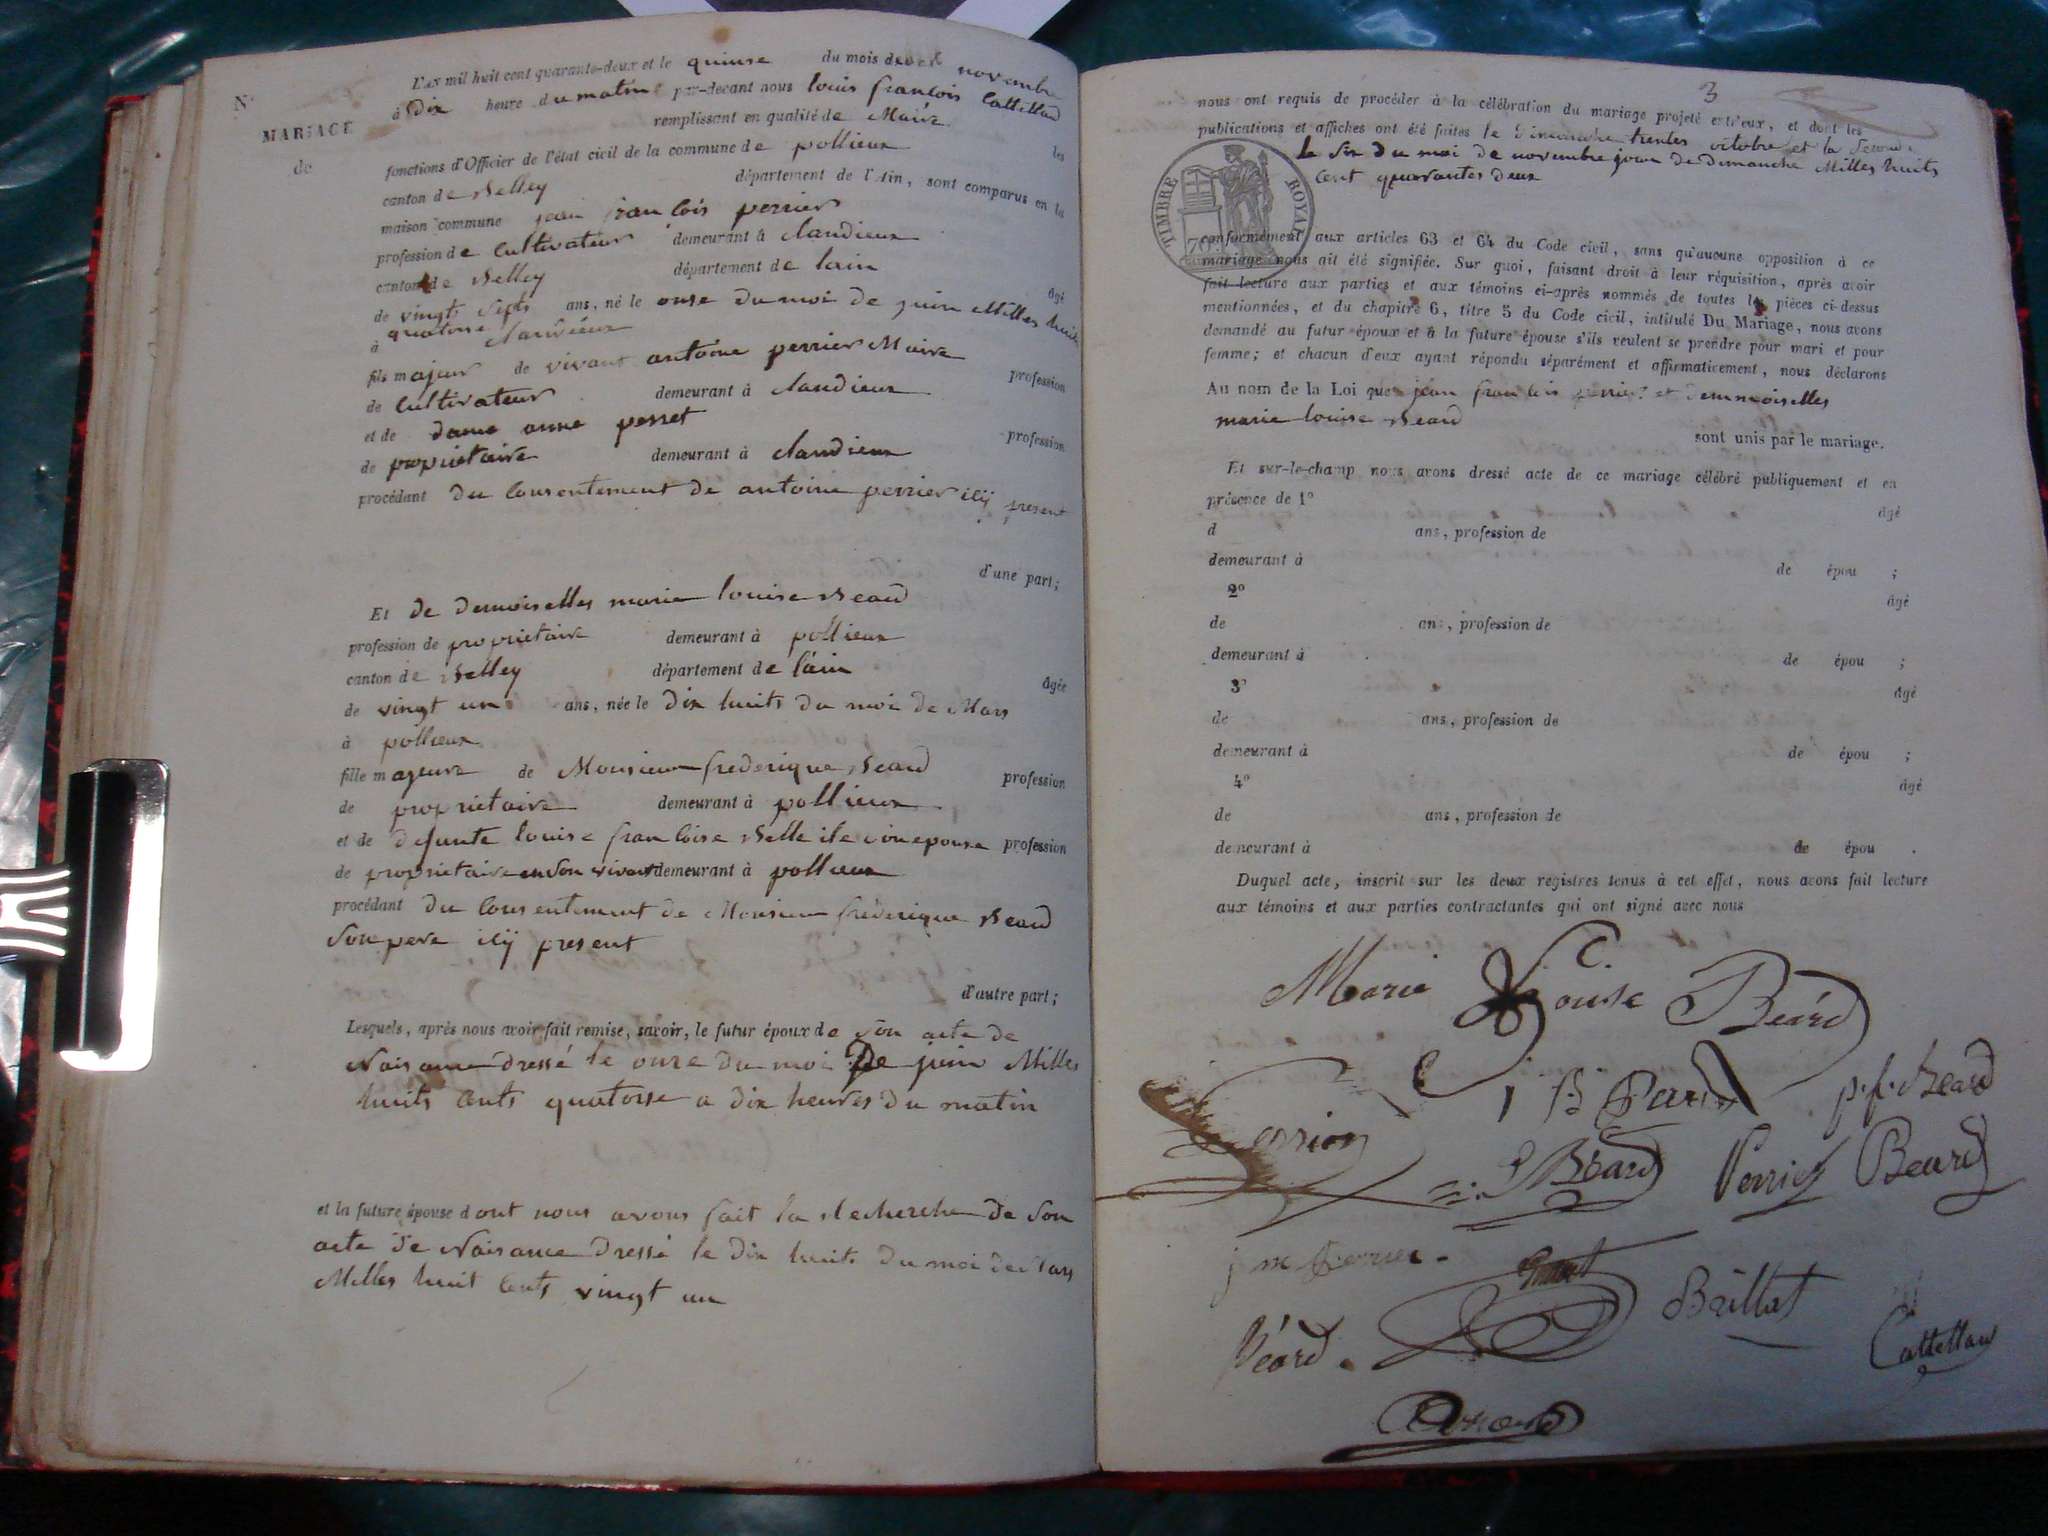 N°
MARIAGE
de
L'AN mil huit cent quarante-deux et le quinse du mois de novembre
à dix heure du matin par-devant nous louis francois Cattellad
remplissant en qualité de Maire les
fonctions d'Officier de l'état civil de la commune de pollieux
canton de Belley département de l'Ain, sont comparus en la
maison commune jean francois perrier
profession de cultivateur demeurant à clandieux
canton de Belley département de lain âgé
de vingt septs ans, né le onse du moi de juin Milles huit
quatorse
à clandieux
fils majeur de vivant antoine perrier Maire profession
de cultivateur demeurant à clandieux
et de dame anne perret profession
de proprietaire demeurant à clandieux
procédant du consentement de antoine perrier icij present
d'une part;
Et de demoiselles marie louise Beard
profession de proprietaire demeurant à pollieux
canton de Belley département de lain âgée
de vingt un ans, née le dix huits du moi de Mars
à pollieux
fille mageure de Monsieur frederique Beard profession
de proprietaire demeurant à pollieux
et de defunte louise francoise Belle ile son epouse profession
de proprietaire en son vivant demeurant à pollieux
procédant du consentement de Monsieur frederique Beard
son pere icij present
d'autre part;
Lesquels, après nous avoir fait remise, savoir, le futur époux de son acte de
Naisance dressé le onse du moi de juin Milles
huits cents quatorse a dix heures du matin
et la future épouse dont nous avons fait la Recherche de son
acte de Naisance dressé le dix huits du moi de Mars
Milles huit cents vingt un
3
nous ont requis de procéder à la célébration du mariage projeté entr'eux, et dont les
publications et affiches ont été faites le dimanche trentes octobre et la second
le six du moi de novembre jour de dimanche Milles huits
cent quarantes deux
TIMBRE ROYAL
70c
conformément aux articles 63 et 64 du Code civil, sans qu'aucune opposition à ce
mariage nous ait été signifiée. Sur quoi, faisant droit à leur réquisition, après avoir
fait lecture aux parties et aux témoins ci-après nommés de toutes les pièces ci-dessus
mentionnées, et du chapitre 6, titre 5 du Code civil, intitulé Du Mariage, nous avons
demandé au futur époux et à la future épouse s'ils veulent se prendre pour mari et pour
femme; et chacun d'eux ayant répondu séparément et affirmativement, nous déclarons
Au nom de la Loi que jean francois perrier et demmoiselles
marie louise Beard
sont unis par le mariage.
Et sur-le-champ nous avons dressé acte de ce mariage célébré publiquement et en
présence de 1° âgé
d ans, profession de
demeurant à de épou ;
2° âgé
de ans, profession de
demeurant à de épou ;
3° âgé
de ans, profession de
demeurant à de épou ;
4° âgé
de ans, profession de
demeurant à de épou .
Duquel acte, inscrit sur les deux registres tenus à cet effet, nous avons fait lecture
aux témoins et aux parties contractantes qui ont signé avec nous
Marie Louise C. Béard
p.f. Beard
Beard Perrier Beard
j m perrier
Béard. Brillat
Cattellad